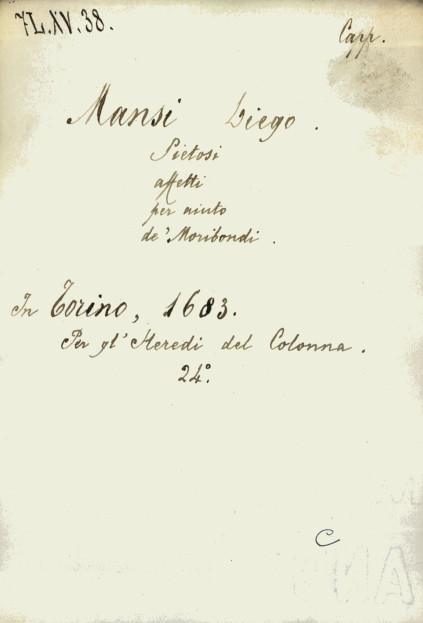 7L.XV.38.
Capp.
Mansi Diego.
Pietosi
affetti
per aiuto
de' Moribondi.
In Torino, 1683.
Per gl' Heredi del Colonna.
24.°
C